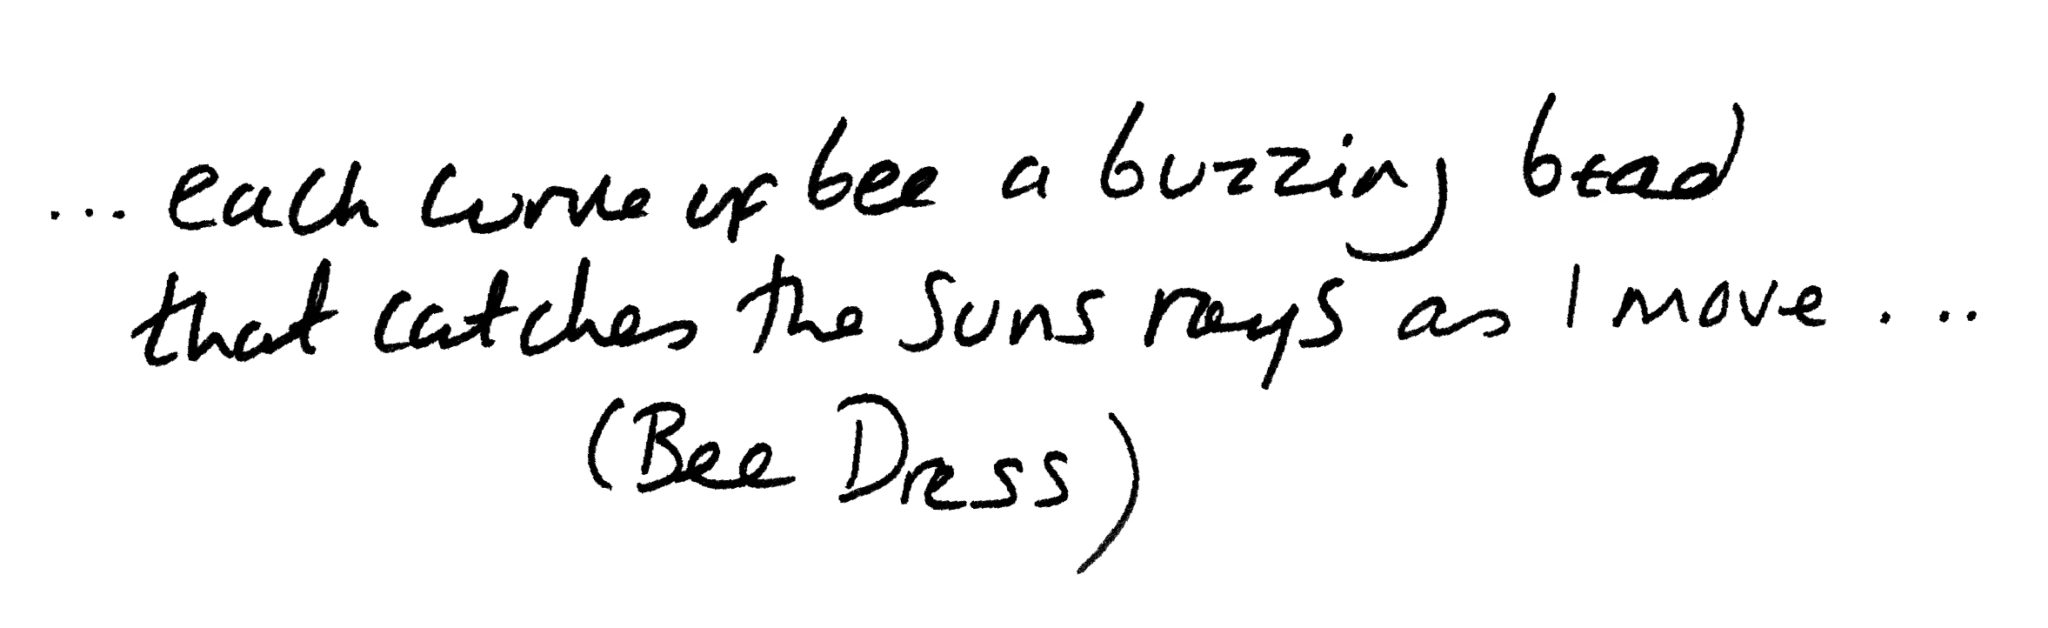 ... each curve of bee a buzzing bead
that catches the suns rays as I move ...
(Bee Dress)